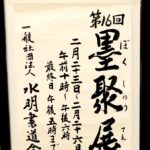 第16回
墨聚展
ぼくしゅうてん
二月二十三日～二月二十六日
午前十時～午後六時
最終日午後五時まで
一般社団法人
水明書道会